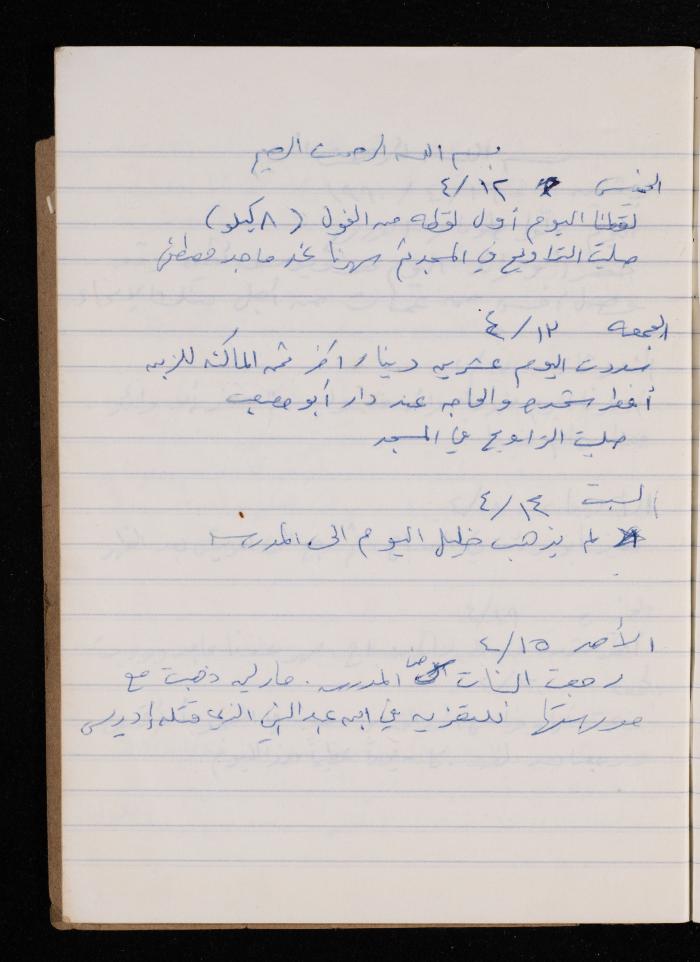 بسم الله الرحمن الرحيم
الخميس ٤/١٢
لقطنا اليوم أول لقطه من الفول (٨ كيلو)
صليت التراويح في المسجد ثم سهرنا عند ماجد مصطفى
الجمعه ٤/١٣
سددت اليوم عشرين دينار آخر ثمن الماكنه للزبن
أفطرت والحاجه عند دار أبو مصعب
صليت التراويح في المسجد
السبت ٤/١٤
لم يذهب خليل اليوم الى المدرسه
الأحد ٤/١٥
رجعت البنات من المدرسه. مارلين ذهبت مع
مدرستها للتعزيه في ابن عبد النبي الذي قتله إدريس